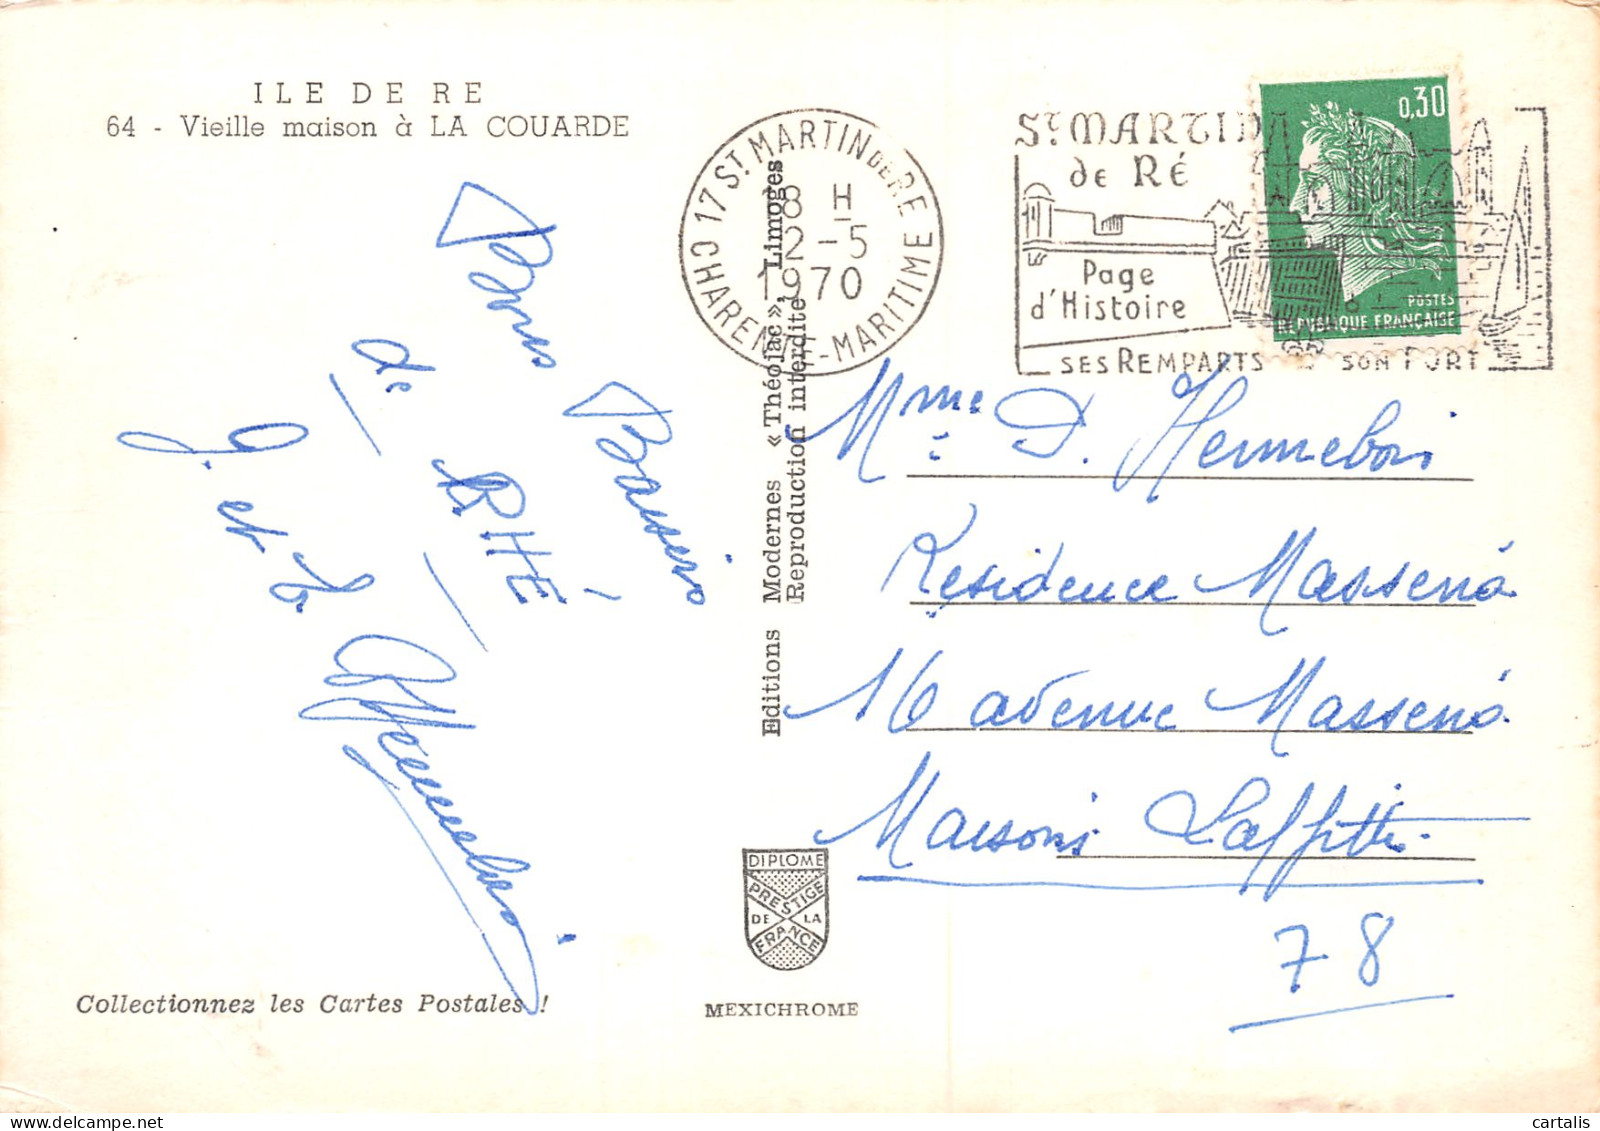 ILE DE RE
64 - Vieille maison à LA COUARDE
Bons Baisers
de RHÉ
J. et
Collectionnez les Cartes Postales !
Editions Modernes « Théolac », Limoges
Reproduction interdite
DIPLOME
PRESTIGE
DE LA
FRANCE
MEXICHROME
17 ST MARTIN DE RE
18 H
2-5
1970
CHARENTE-MARITIME
ST MARTIN
de Ré
Page
d'Histoire
SES REMPARTS SON PORT
0,30
POSTES
REPUBLIQUE FRANÇAISE
Mme D. Hennebois
Résidence Masséna
16 avenue Masséna
Maisons Laffitte
78
cartalis
delcampe.net